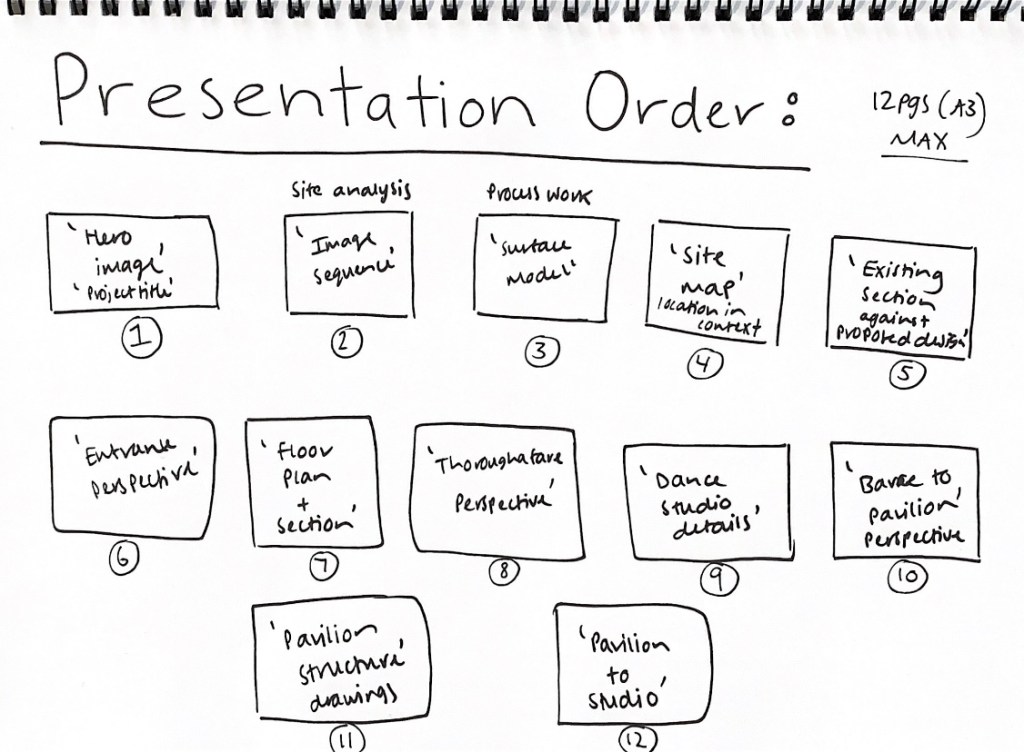 Presentation Order:
12pgs (A3)
MAX
Site analysis
Process work
'Hero
image'
'Project title'
1
'Image
sequence'
2
'Surface
model'
3
'Site
map'
location in
context
4
'Existing
section
against
proposed design'
5
'Entrance
perspective'
6
'Floor
Plan
+
section'
7
'Thoroughafare
perspective'
8
'Dance
studio
details'
9
'Barre to
pavilion'
perspective
10
'Pavilion
structure'
drawings
11
'Pavilion
to
studio'
12